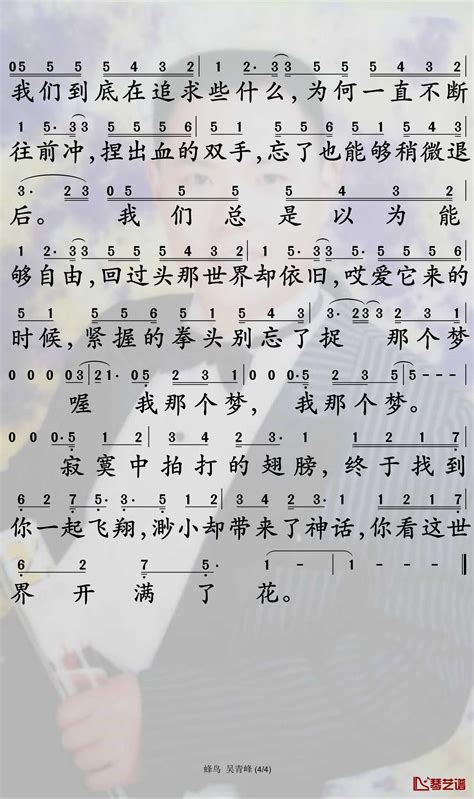 05 5 5 5 4 3 2 | 1 2· 3 3 5 5 5 4 3 2
我们到底在追求些什么,为何一直不断
1 5· 3 3 5 5 5 6 5 1 5 4 3
往前冲,捏出血的双手,忘了也能够稍微退
3· 2 3 0 5 5 5 4 3 2
后。 我们总是以为能
1 2· 3 3 5 5 5 4 3 2 1 5· 3 3 5 5 5 6
够自由,回过头那世界却依旧,哎爱它来的
5 1 5 5 5 6 5 1 5 4 3 3· 2 3 3 2 2 3 1
时候,紧握的拳头别忘了捉 那个梦
0 0 0 0 3 | 2 1· 0 5 2 3 1 5 2 3 2 5 - - -
喔 我那个梦, 我那个梦。
0 0 0 5 1 2 3 2 1 2 1 7
寂寞中拍打的翅膀,终于找到
6 2 7 5· 3· 5 1 2 3 4 3 2 0 1 1 2 1 7
你一起飞翔,渺小却带来了神话,你看这世
6 2 7 5· 1 1 - - -
界开满了花。
蜂鸟 吴青峰 (4/4)
琴艺谱